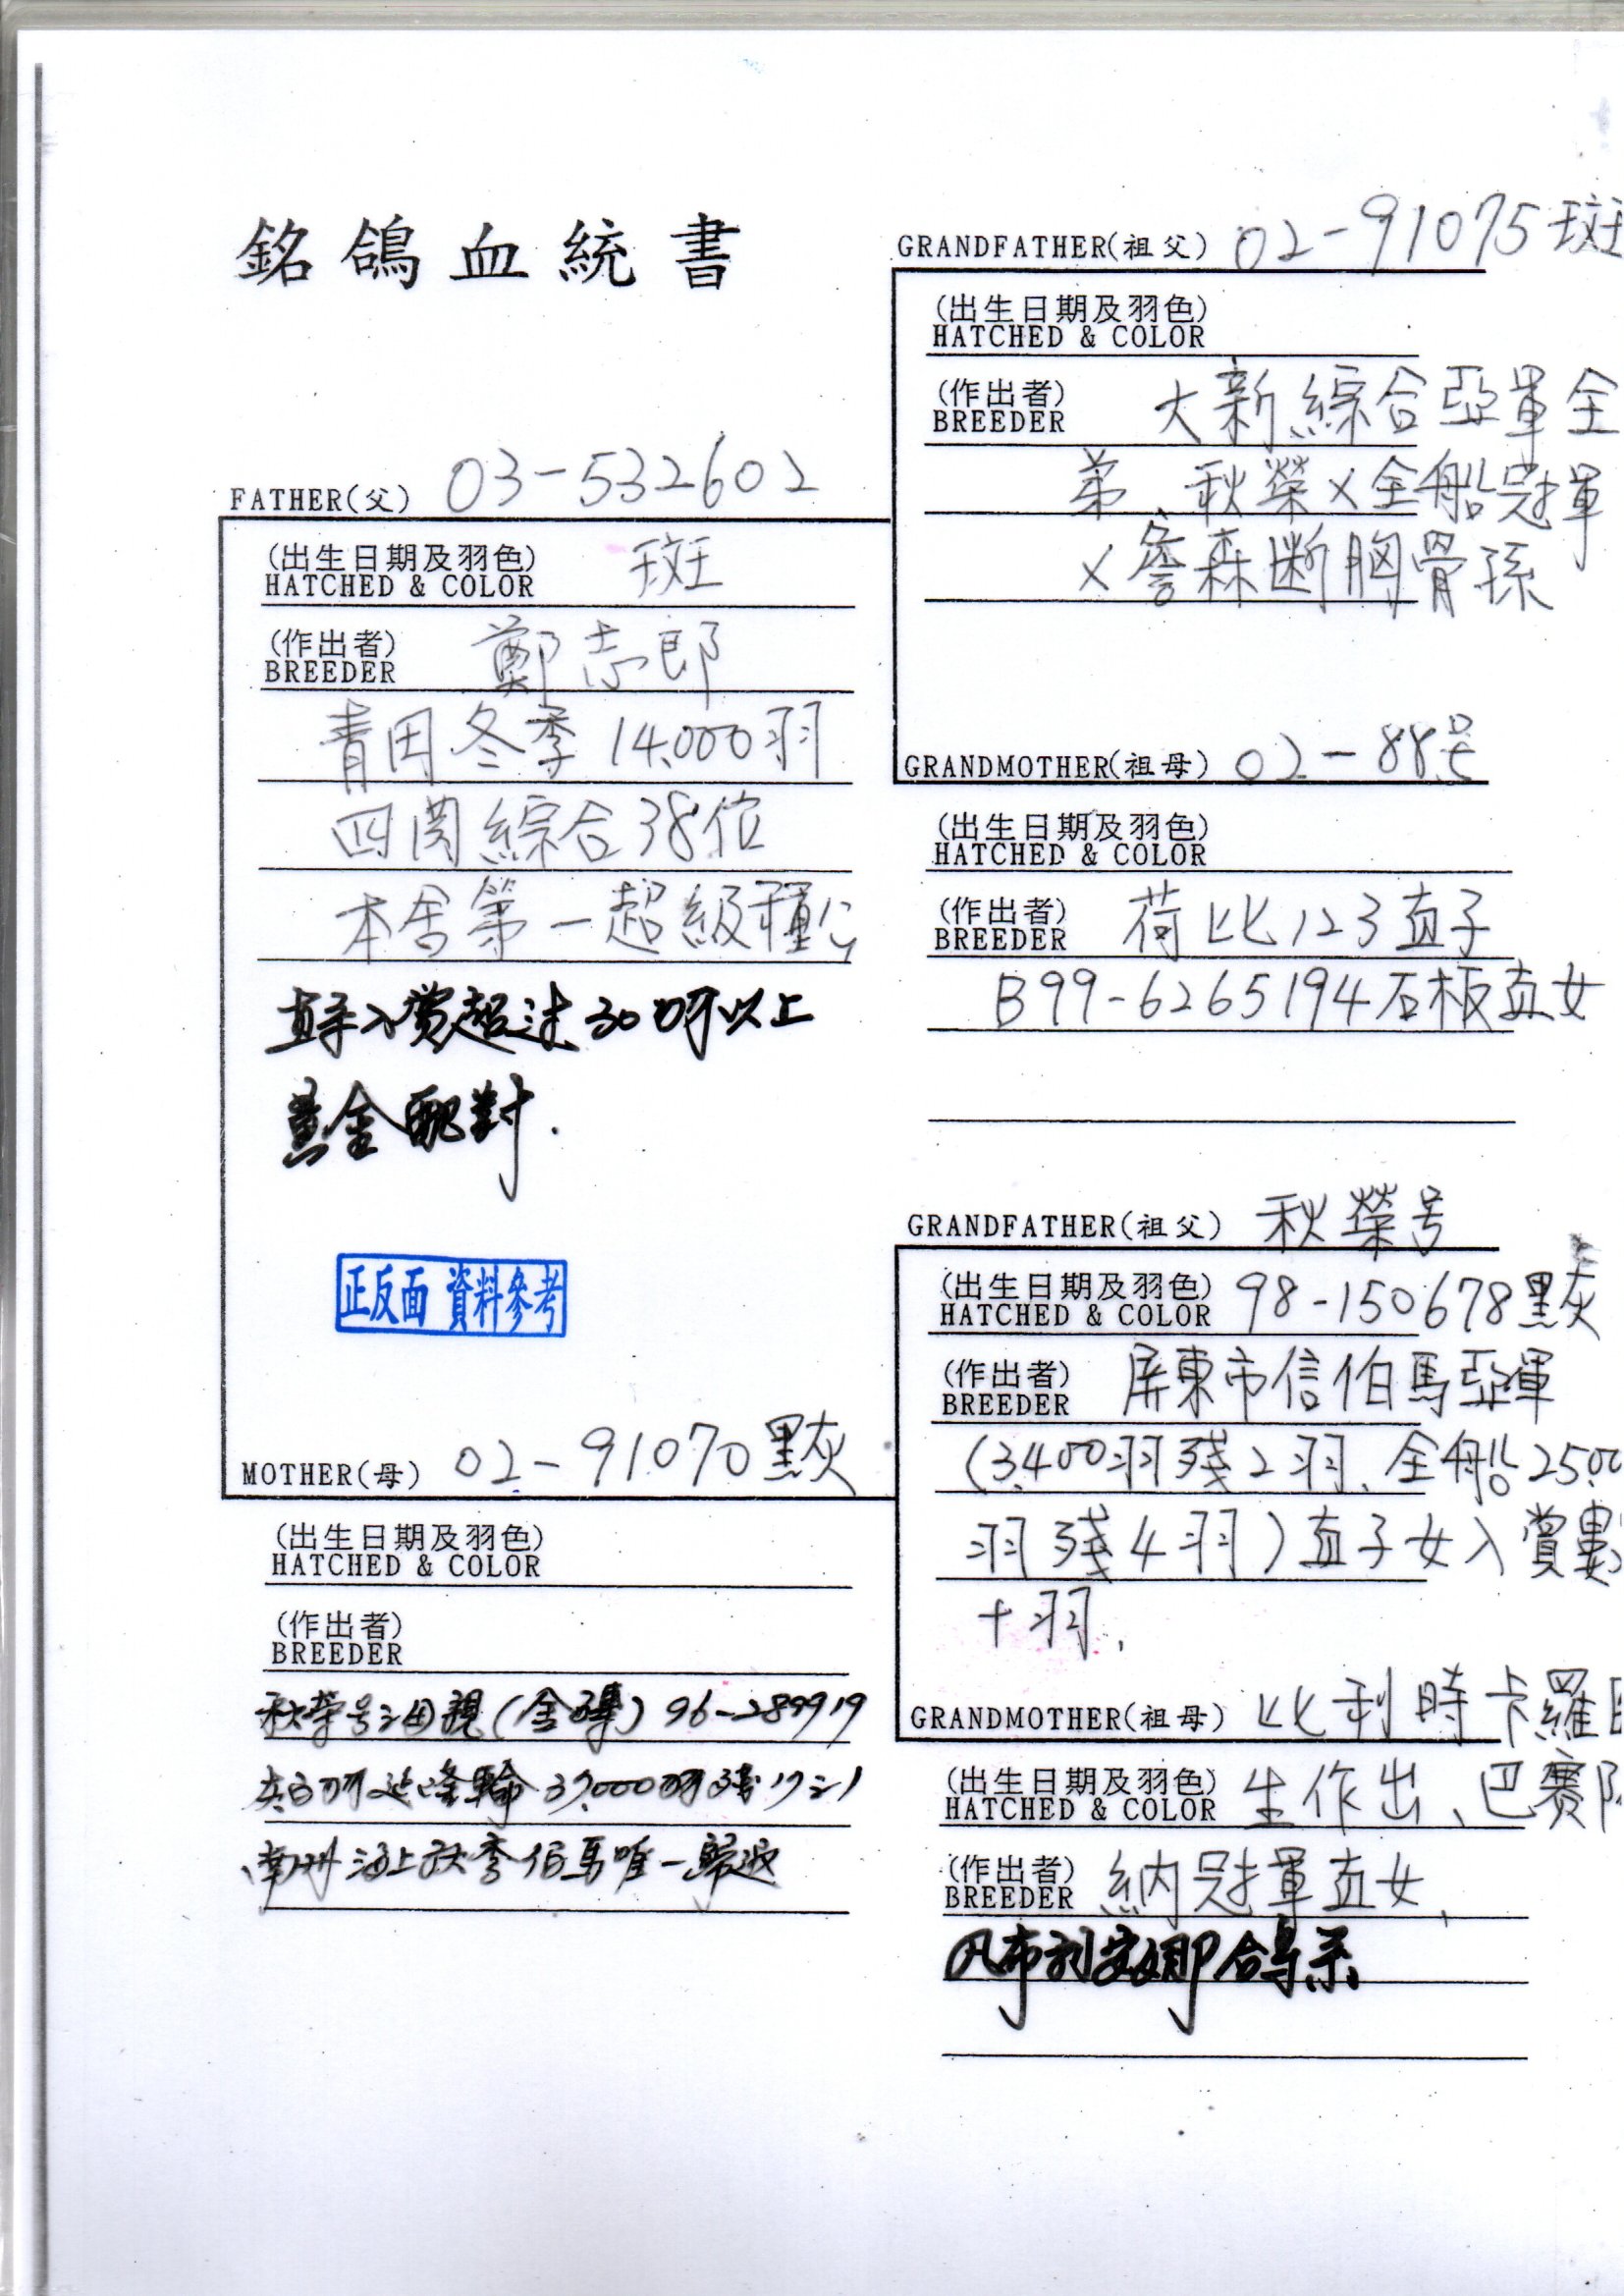 銘鴿血統書
FATHER(父) 03-532602
(出生日期及羽色) 斑
HATCHED & COLOR
(作出者) 鄭志郎
BREEDER
青田冬季14.000羽
四関綜合38位
本舍第一超級種公
入賞超过30羽以上
黃金配對.
正反面 資料參考
MOTHER(母) 02-91070黑灰
(出生日期及羽色)
HATCHED & COLOR
(作出者)
BREEDER
秋榮号之母親(金磚)96-289919
37.000羽殘17之1
南州海上秋季伯馬唯一歸返
GRANDFATHER(祖父) 02-91075斑
(出生日期及羽色)
HATCHED & COLOR
(作出者) 大新綜合亞軍全
BREEDER
弟、秋榮x全船冠軍
x詹森断胸骨孫
GRANDMOTHER(祖母) 02-88号
(出生日期及羽色)
HATCHED & COLOR
(作出者) 荷比123直子
BREEDER
B99-6265194石板直女
GRANDFATHER(祖父) 秋榮号
(出生日期及羽色) 98-150678黑灰
HATCHED & COLOR
(作出者) 屏東市信伯馬亞軍
BREEDER
(3.400羽殘2羽、全船2500
羽殘4羽)直子女入賞數
十羽、
GRANDMOTHER(祖母) 比利時卡羅
(出生日期及羽色) 生作出、巴賽
HATCHED & COLOR
(作出者) 納冠軍直女、
BREEDER
凡布利安娜